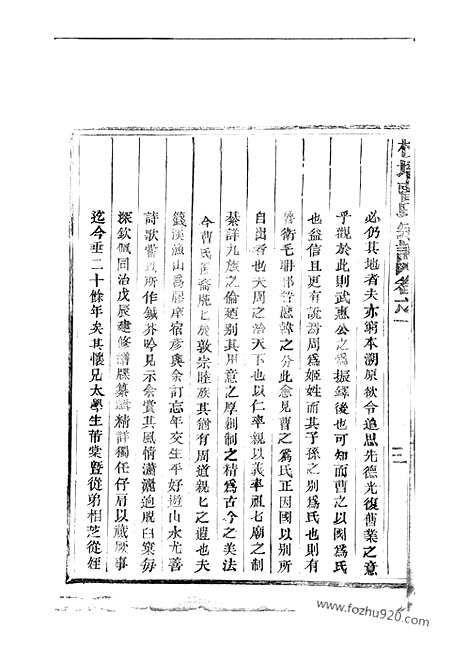 必仍其地者夫亦窮本溯原欲令追思先德光復舊業之意
乎觀於此則武惠公之為振鐸後也可知而曹之以國為氏
也益信且更有說焉周為姬姓而其子孫之別為氏也則有
魯衛毛聃之分此愈見曹之為氏正因國以別所
自出者也夫周之治天下也以仁率親以義率祖七廟之制
綦詳九族之倫迺別其用意之厚創制之精為古今之美法
今曹氏裔庇匕於敦宗睦族其猶有周道親匕之遺也夫
簑溪漁山為序宿彥與余訂忘年交生平好遊山水尤善
詩歌舊所作鍼芥吟見示余賞其風情瀟灑迥脫臼窠每
深欽佩同治戊辰建修譜牒纂輯精詳獨任仔肩以蕆厥事
迄今垂二十餘年矣其懷兄太學生芾棠暨從弟相芝從姪
氏宗譜
卷之一
三
www.fozhu920.com